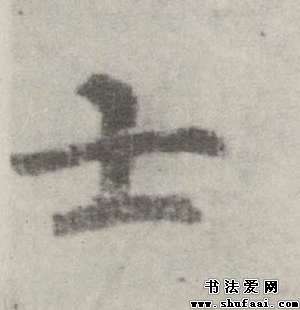 士
书法爱网
www.shufaai.com